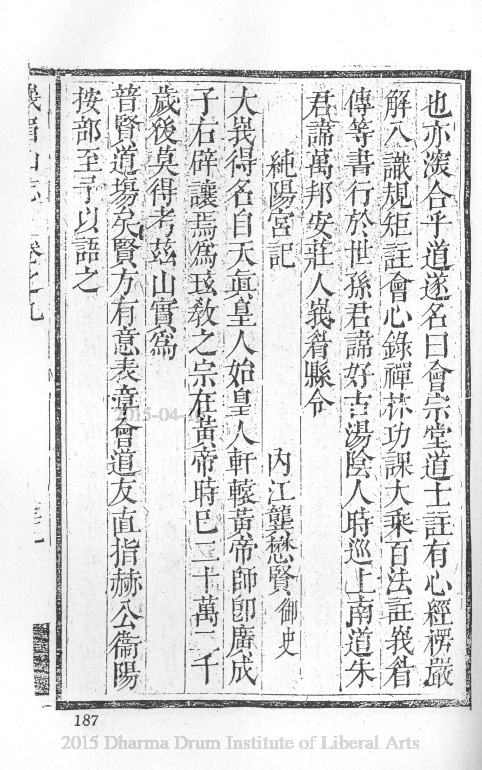 也亦渙合乎道遂名曰會宗堂道士註有心經楞嚴
解八識規矩註會心錄禪林功課大乘百法註峩眉
傳等書行於世孫君諱好古湯陰人時巡上南道朱
君諱萬邦安莊人峩眉縣令
純陽宮記 內江龔懋賢御史
大峩得名自天眞皇人始皇人軒轅黃帝師卽廣成
子右辟讓焉爲玹敎之宗在黃帝時已二十萬二千
歲後莫得考茲山實爲
普賢道場矣賢方有意表章會道友直指赫公衞陽
按部至予以語之
峩眉山志 卷之九
187
2015-04-
2015 Dharma Drum Institute of Liberal Arts